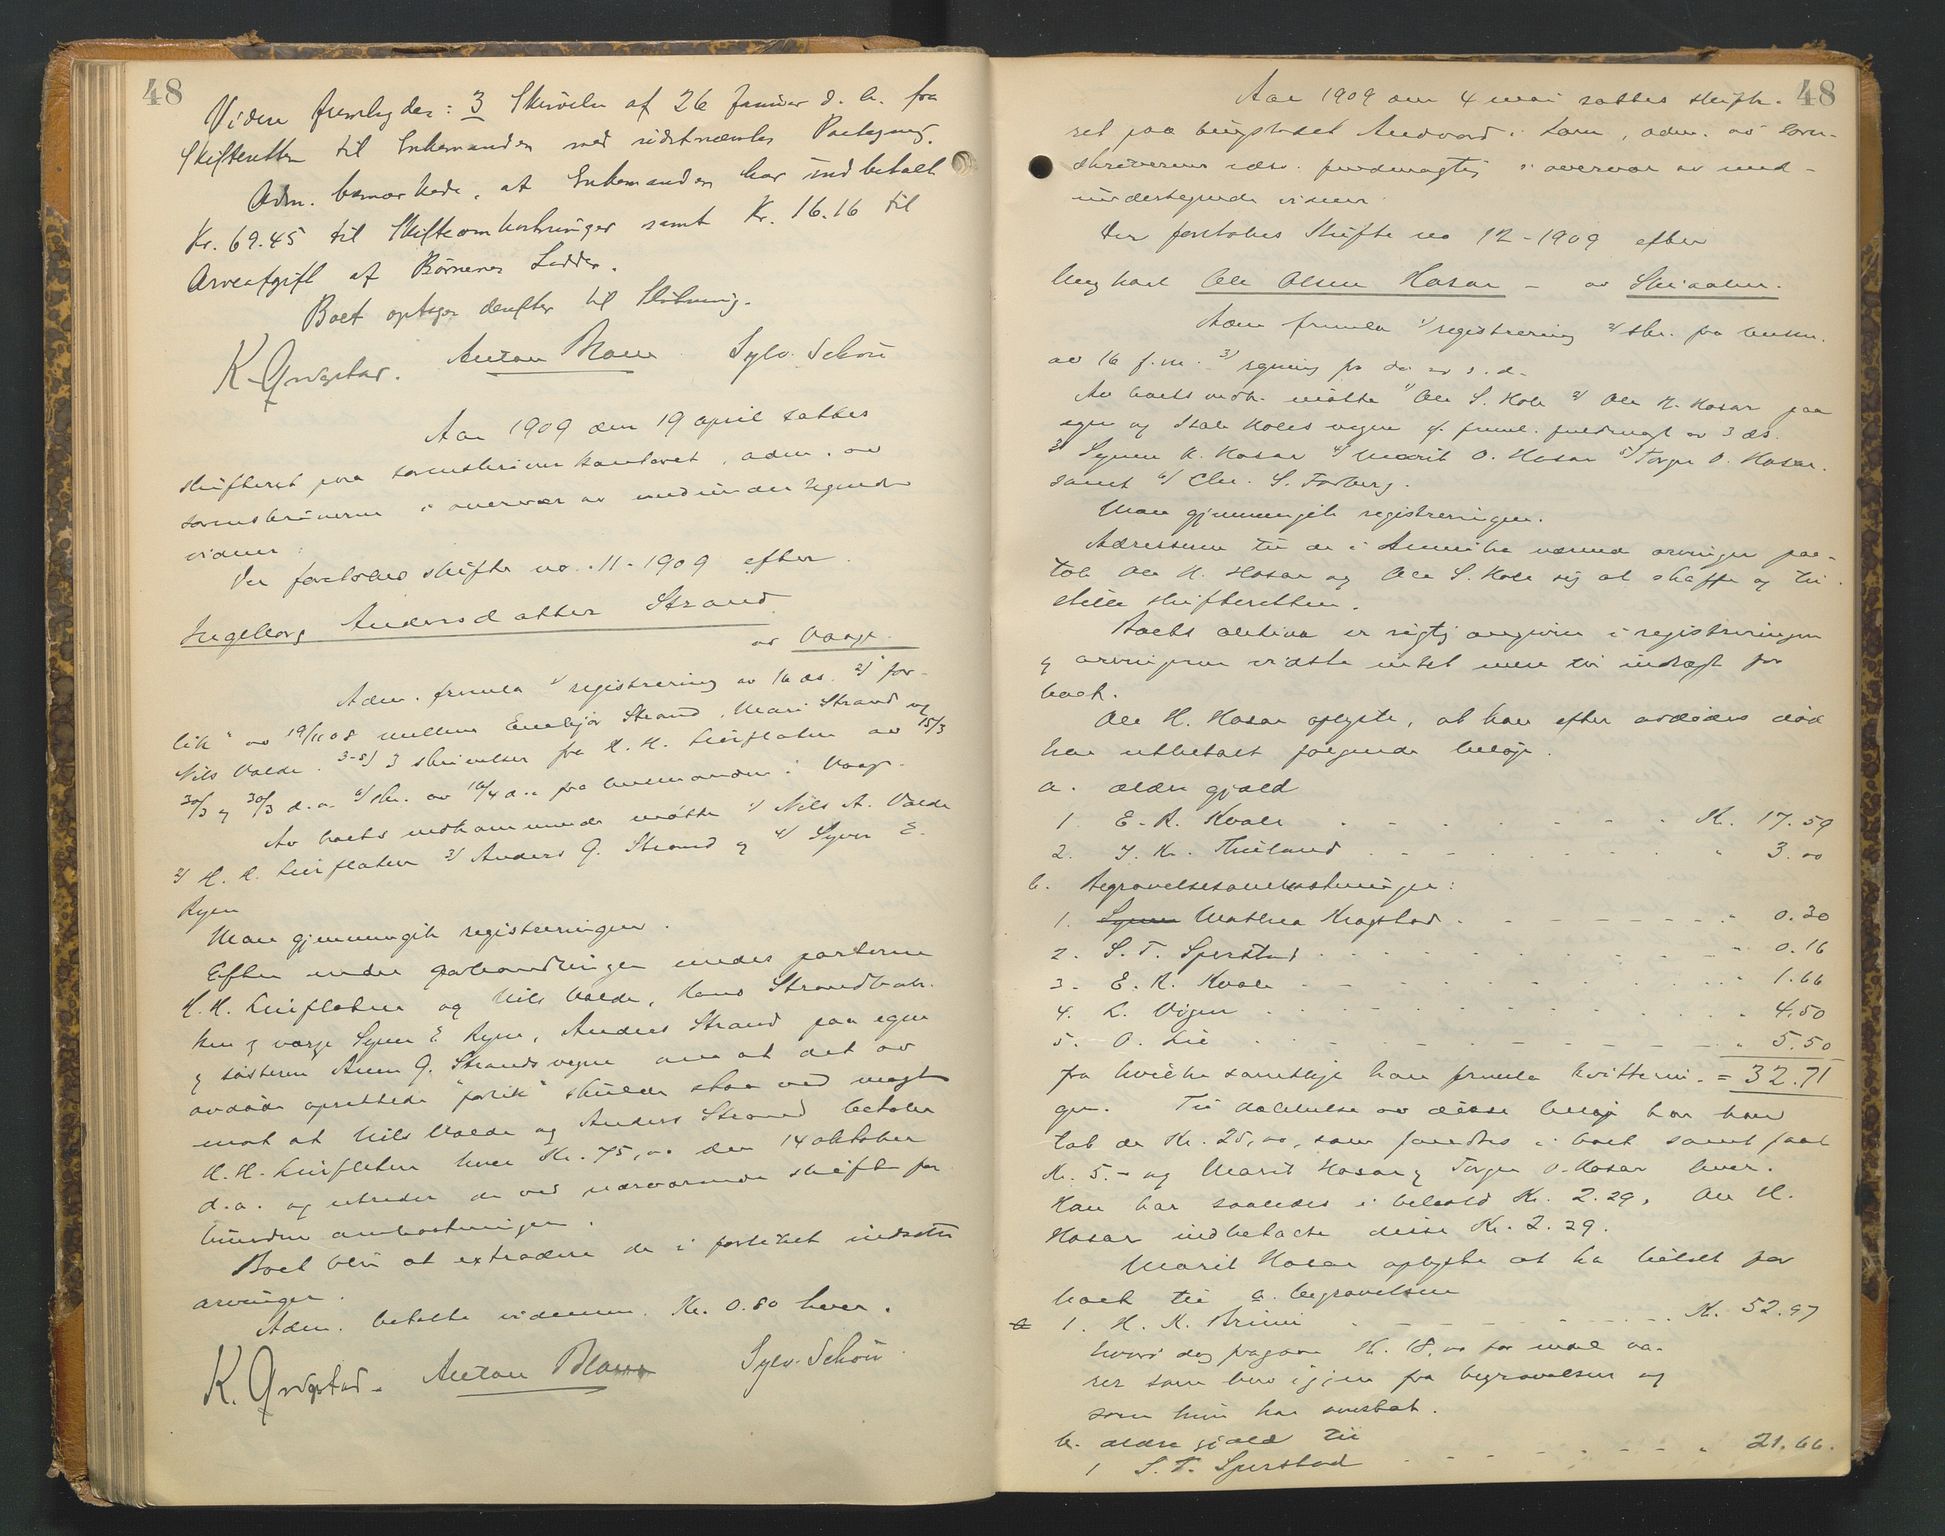 48
Videre fremlagdes: 3 Skrivelse af 26 Januar d. A. fra
Skifteretten til Enkemanden med sidstnævntes Paategning.
Adm. bemærkede, at Enkemanden har indbetalt
Kr. 69.45 til Skifteomkostninger samt Kr. 16.16 til
Arveafgift af Børnenes Lodder.
Boet optages derefter til Slutning.
K. Qvigstad. Anton Moen Sylv. Schou
Aar 1909 den 19 april sattes
skifteret paa sorenskriverkontoret, adm. av
sorenskriveren i overvær av medundertegnede
vidner:
Der foretokes skifte no. 11-1909 efter
Ingeborg Andersdatter Strand
av Vaage.
Adm. fremla 1/ registrering av 16 ds. 2/ "for-
lik" av 19/11 08 mellem Strand, Mari Strand og
Nils Valde. 3-5/ 3 skrivelser fra H. H. av 15/3
30/3 og 30/3 d.a. 6/ skr. av 10/4 d.a. fra lensmanden i Vaage.
Av boets vedkommende møtte 1/ Nils A. Valde
2/ H. H. 3/ Anders G. Strand og 4/ Syver E.
Ryen
Man gjennemgik registreringen.
Efter endel forhandlinger enedes parterne
H. H. og Nils Valde, Hans Strandbak-
ken og værge Syver E Ryen, Anders Strand paa egne
og søsteren Anne G. Strands vegne om at det av
avdøde oprettede "forlik" skulde staa ved magt
mot at Nils Valde og Anders Strand betaler
H. H. hver Kr. 75,00 den 14 oktober
d.a. og utreder de ved nærværende skifte for-
bundne omkostninger.
Boet blir at extradere de i forliket indsatte
arvinger.
Adm. betalte vidnerne Kr. 0.80 hver.
K. Qvigstad. Anton Moen Sylv. Schou.
48
Aar 1909 den 4 mai sattes skifte-
ret paa tingstedet Andvord i Lom, adm. av soren-
skriverens edsv. fuldmægtig i overvær av med-
undertegnede vidner.
Der foretokes skifte no 12-1909 efter
Ungkarl Ole Olsen Hosar - av Skiaaker.
Adm fremla 1/ registrering 2/ skr. fra lensm.
av 16 f.m. 3/ regning fra do av s.d.
Av boets vedk. møtte 1/ Ole S. Hole 2/ Ole H. Hosar paa
egne og Isak Holes vegne if. freml. fuldmagt av 3 ds.
3/ Synnu H. Hosar 4/ Marit O. Hosar 5/ Torger O. Hosar.
samt 6/ Chr. S. Forberg.
Man gjennemgik registreringen.
Adresserne til de i Amerika værende arvinger paa-
tok Ole H. Hosar og Ole S. Hole sig at skaffe og til-
stille skifteretten.
Boets aktiva er rigtig angivne i registreringen
og arvingerne vidste intet mere til indtægt for
boet.
Ole H. Hosar oplyste, at han efter avdødes død
har utbetalt følgende beløp.
a. ældre gjæld
1 E. R. Kvale Kr. 17.59
2. J. K. " 3.00
b. Begravelsesomkostninger:
1. Mathea Kragstad " 0.30
2. S. T. Sperstad " 0.16
3. E. R. Kvale " 1.66
4. L. Vigen " 4.50
5. O. Lie " 5.50
fra hvilke samtlige han fremla kvitterin- = 32.71
ger. Til dækkelse av disse beløp har han
tat de Kr. 25,00, som fandtes i boet samt faat
Kr. 5.- av Marit Hosar og Torger O. Hosar hver.
Han har saaledes i behold Kr. 2.29, Ole H.
Hosar indbetalte disse Kr. 2.29.
Marit Hosar oplyste at ha utlagt for
boet til a. begravelsen
1. H. K. Brimi Kr. 52.97
hvori dog fragaar Kr. 18,00 for endel va-
rer som blev igjen fra begravelsen og
som hun har overtat.
b. ældre gjæld til
1 S. T. Sperstad " 21.66.